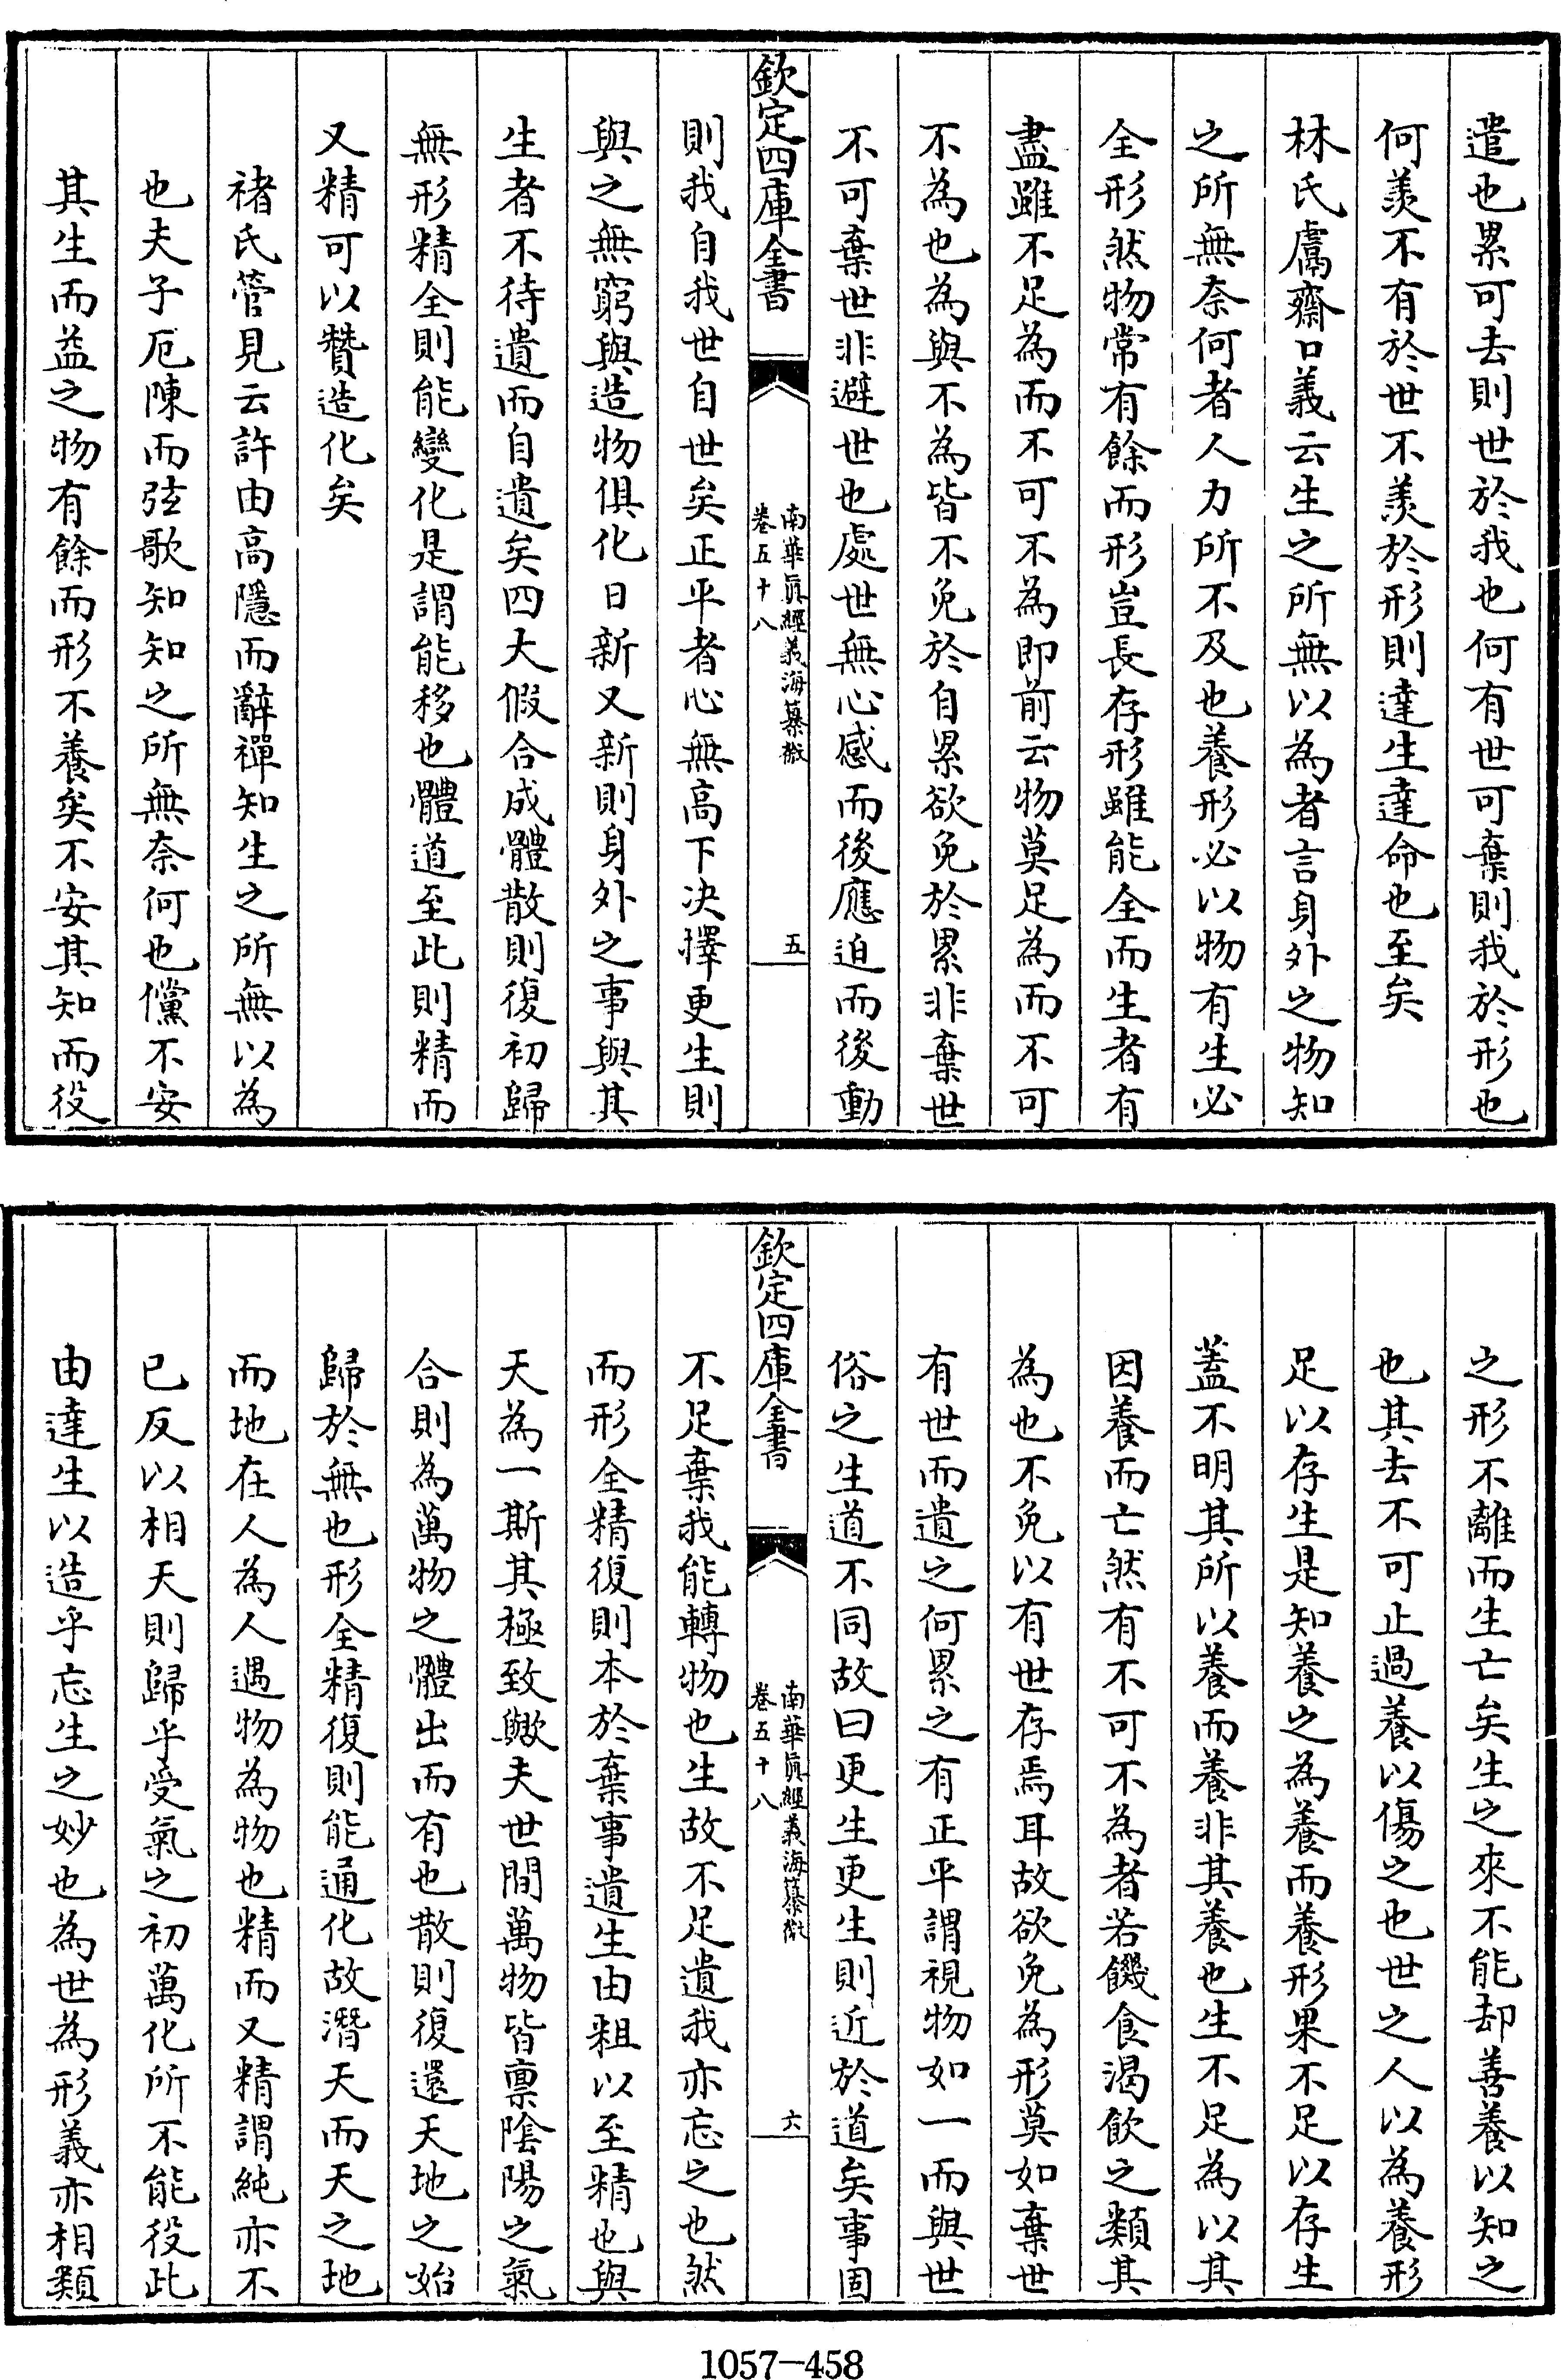 遣也累可去則世於我也何有世可棄則我於形也
何羨不有於世不羨於形則達生達命也至矣
林氏鬳齋口義云生之所無以為者言身外之物知
之所無奈何者人力所不及也養形必以物有生必
全形然物常有餘而形豈長存形雖能全而生者有
盡雖不足為而不可不為即前云物莫足為而不可
不為也為與不為皆不免於自累欲免於累非棄世
不可棄世非避世也處世無心感而後應迫而後動
欽定四庫全書
南華真經義海纂微
卷五十八
五
則我自我世自世矣正平者心無高下決擇更生則
與之無窮與造物俱化日新又新則身外之事與其
生者不待遺而自遺矣四大假合成體散則復初歸
無形精全則能變化是謂能移也體道至此則精而
又精可以贊造化矣
褚氏管見云許由高隱而辭禪知生之所無以為
也夫子厄陳而弦歌知知之所無奈何也儻不安
其生而益之物有餘而形不養矣不安其知而役
之形不離而生亡矣生之來不能却善養以知之
也其去不可止過養以傷之也世之人以為養形
足以存生是知養之為養而養形果不足以存生
蓋不明其所以養而養非其養也生不足為以其
因養而亡然有不可不為者若饑食渴飲之類其
為也不免以有世存焉耳故欲免為形莫如棄世
有世而遺之何累之有正平謂視物如一而與世
俗之生道不同故曰更生更生則近於道矣事固
欽定四庫全書
南華真經義海纂微
卷五十八
六
不足棄我能轉物也生故不足遺我亦忘之也然
而形全精復則本於棄事遺生由粗以至精也與
天為一斯其極致歟夫世間萬物皆禀陰陽之氣
合則為萬物之體出而有也散則復還天地之始
歸於無也形全精復則能通化故潛天而天之地
而地在人為人遇物為物也精而又精謂純亦不
已反以相天則歸乎受氣之初萬化所不能役此
由達生以造乎忘生之妙也為世為形義亦相類
1057-458